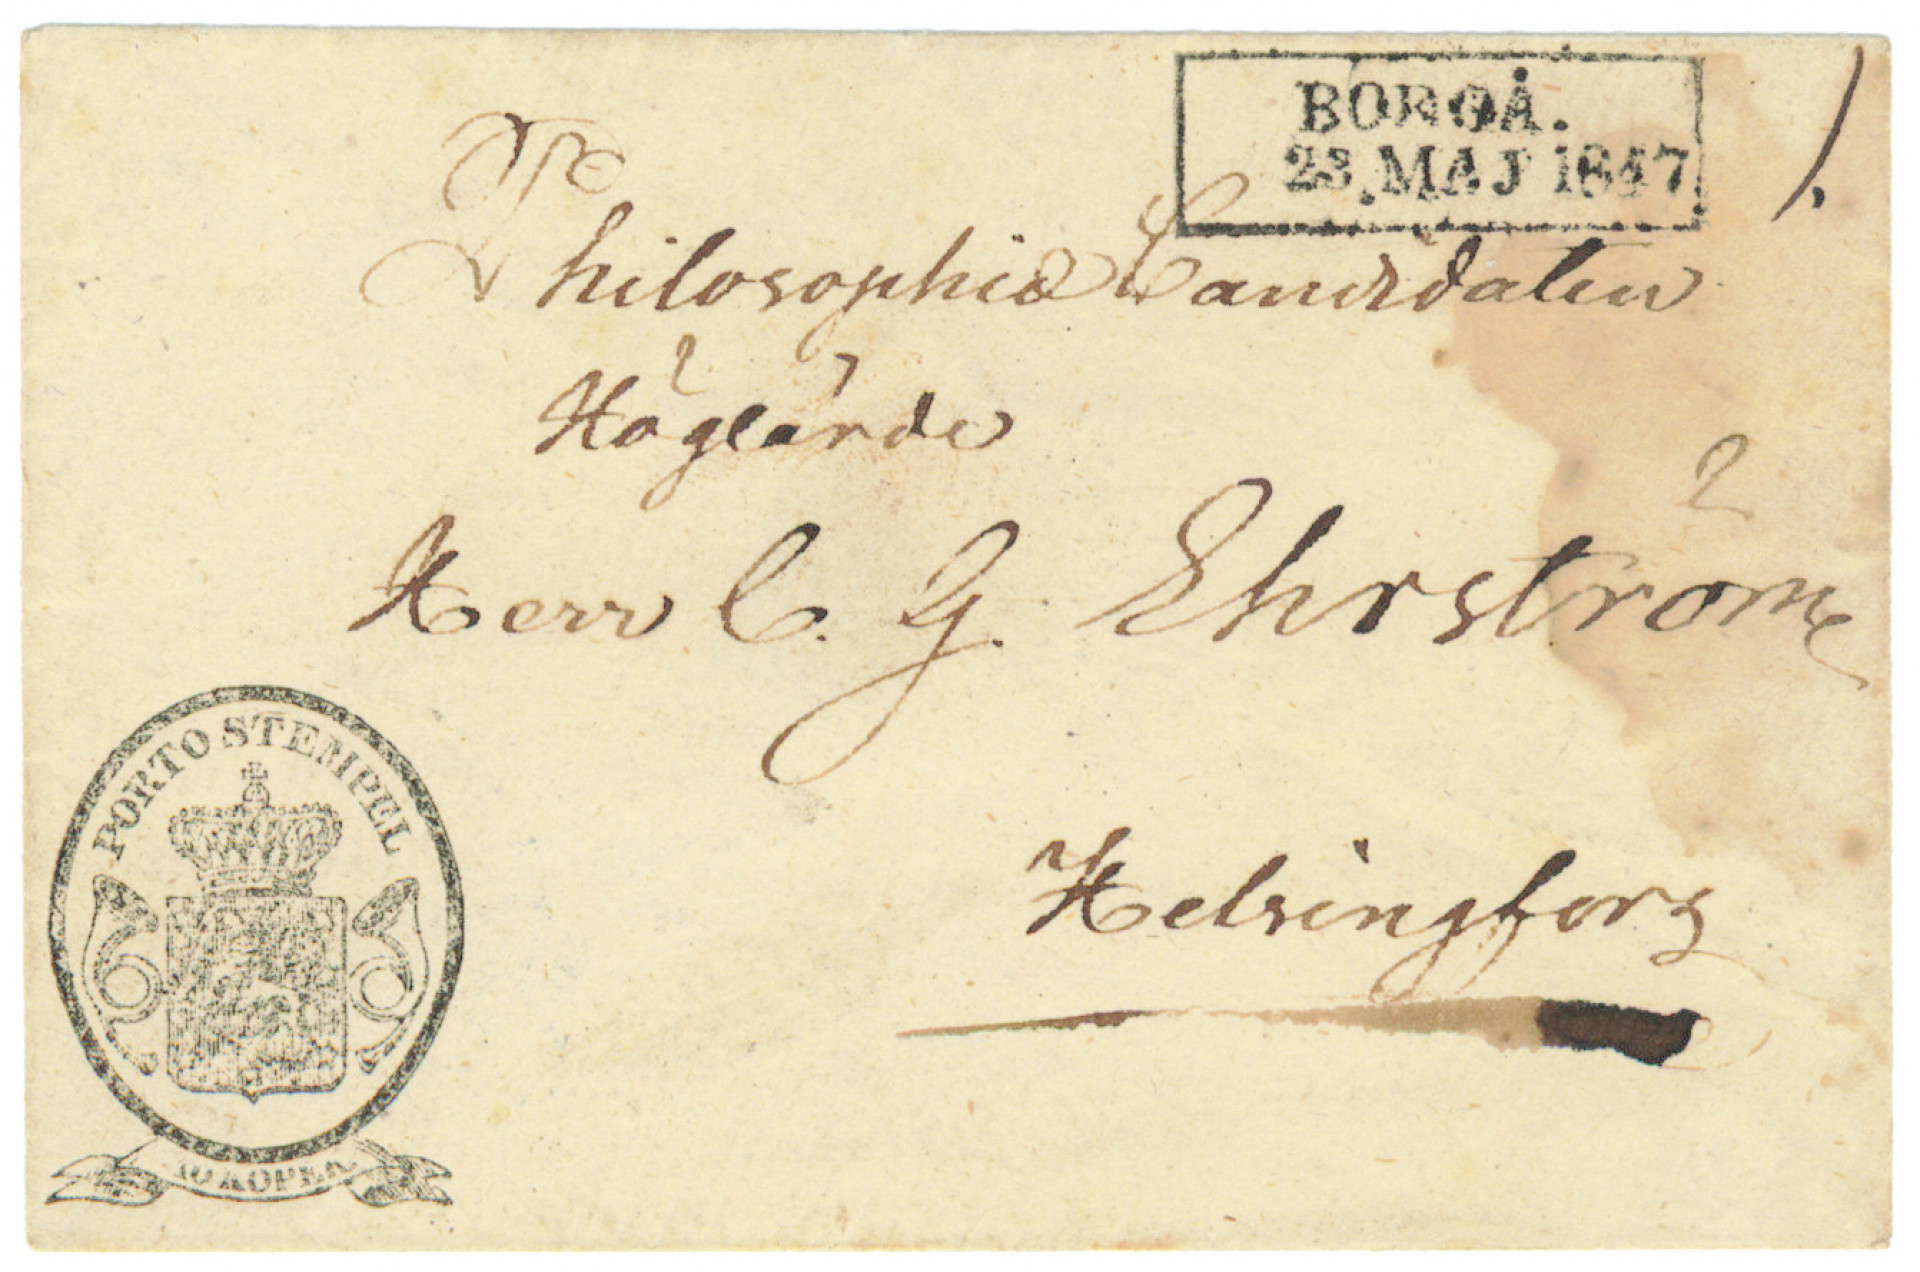 BORGÅ.
23 MAJ 1847
Philosophiæ Candidaten
Höglärde
Herr C. G. Ehrström
Helsingfors
PORTO STEMPEL
10 KOPEK